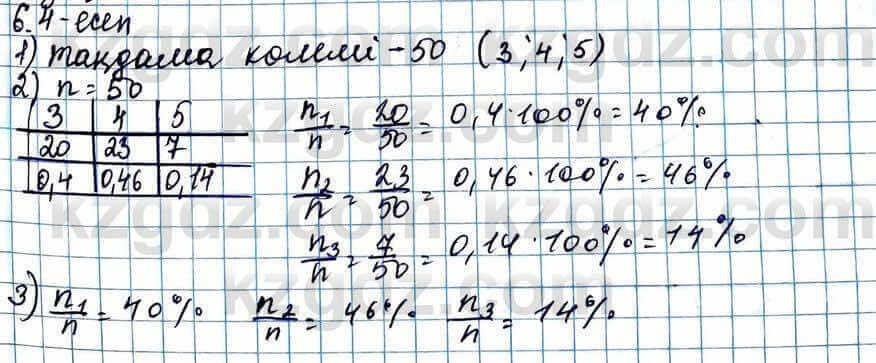 6.4-есеп
1) таңдама көлемі - 50 (3; 4; 5)
2) n = 50
3 4 5
20 23 7
0,4 0,46 0,14
n₁/n = 20/50 = 0,4·100% = 40%
n₂/n = 23/50 = 0,46·100% = 46%
n₃/n = 7/50 = 0,14·100% = 14%
3) n₁/n = 40% n₂/n = 46% n₃/n = 14%
kzgdz.com